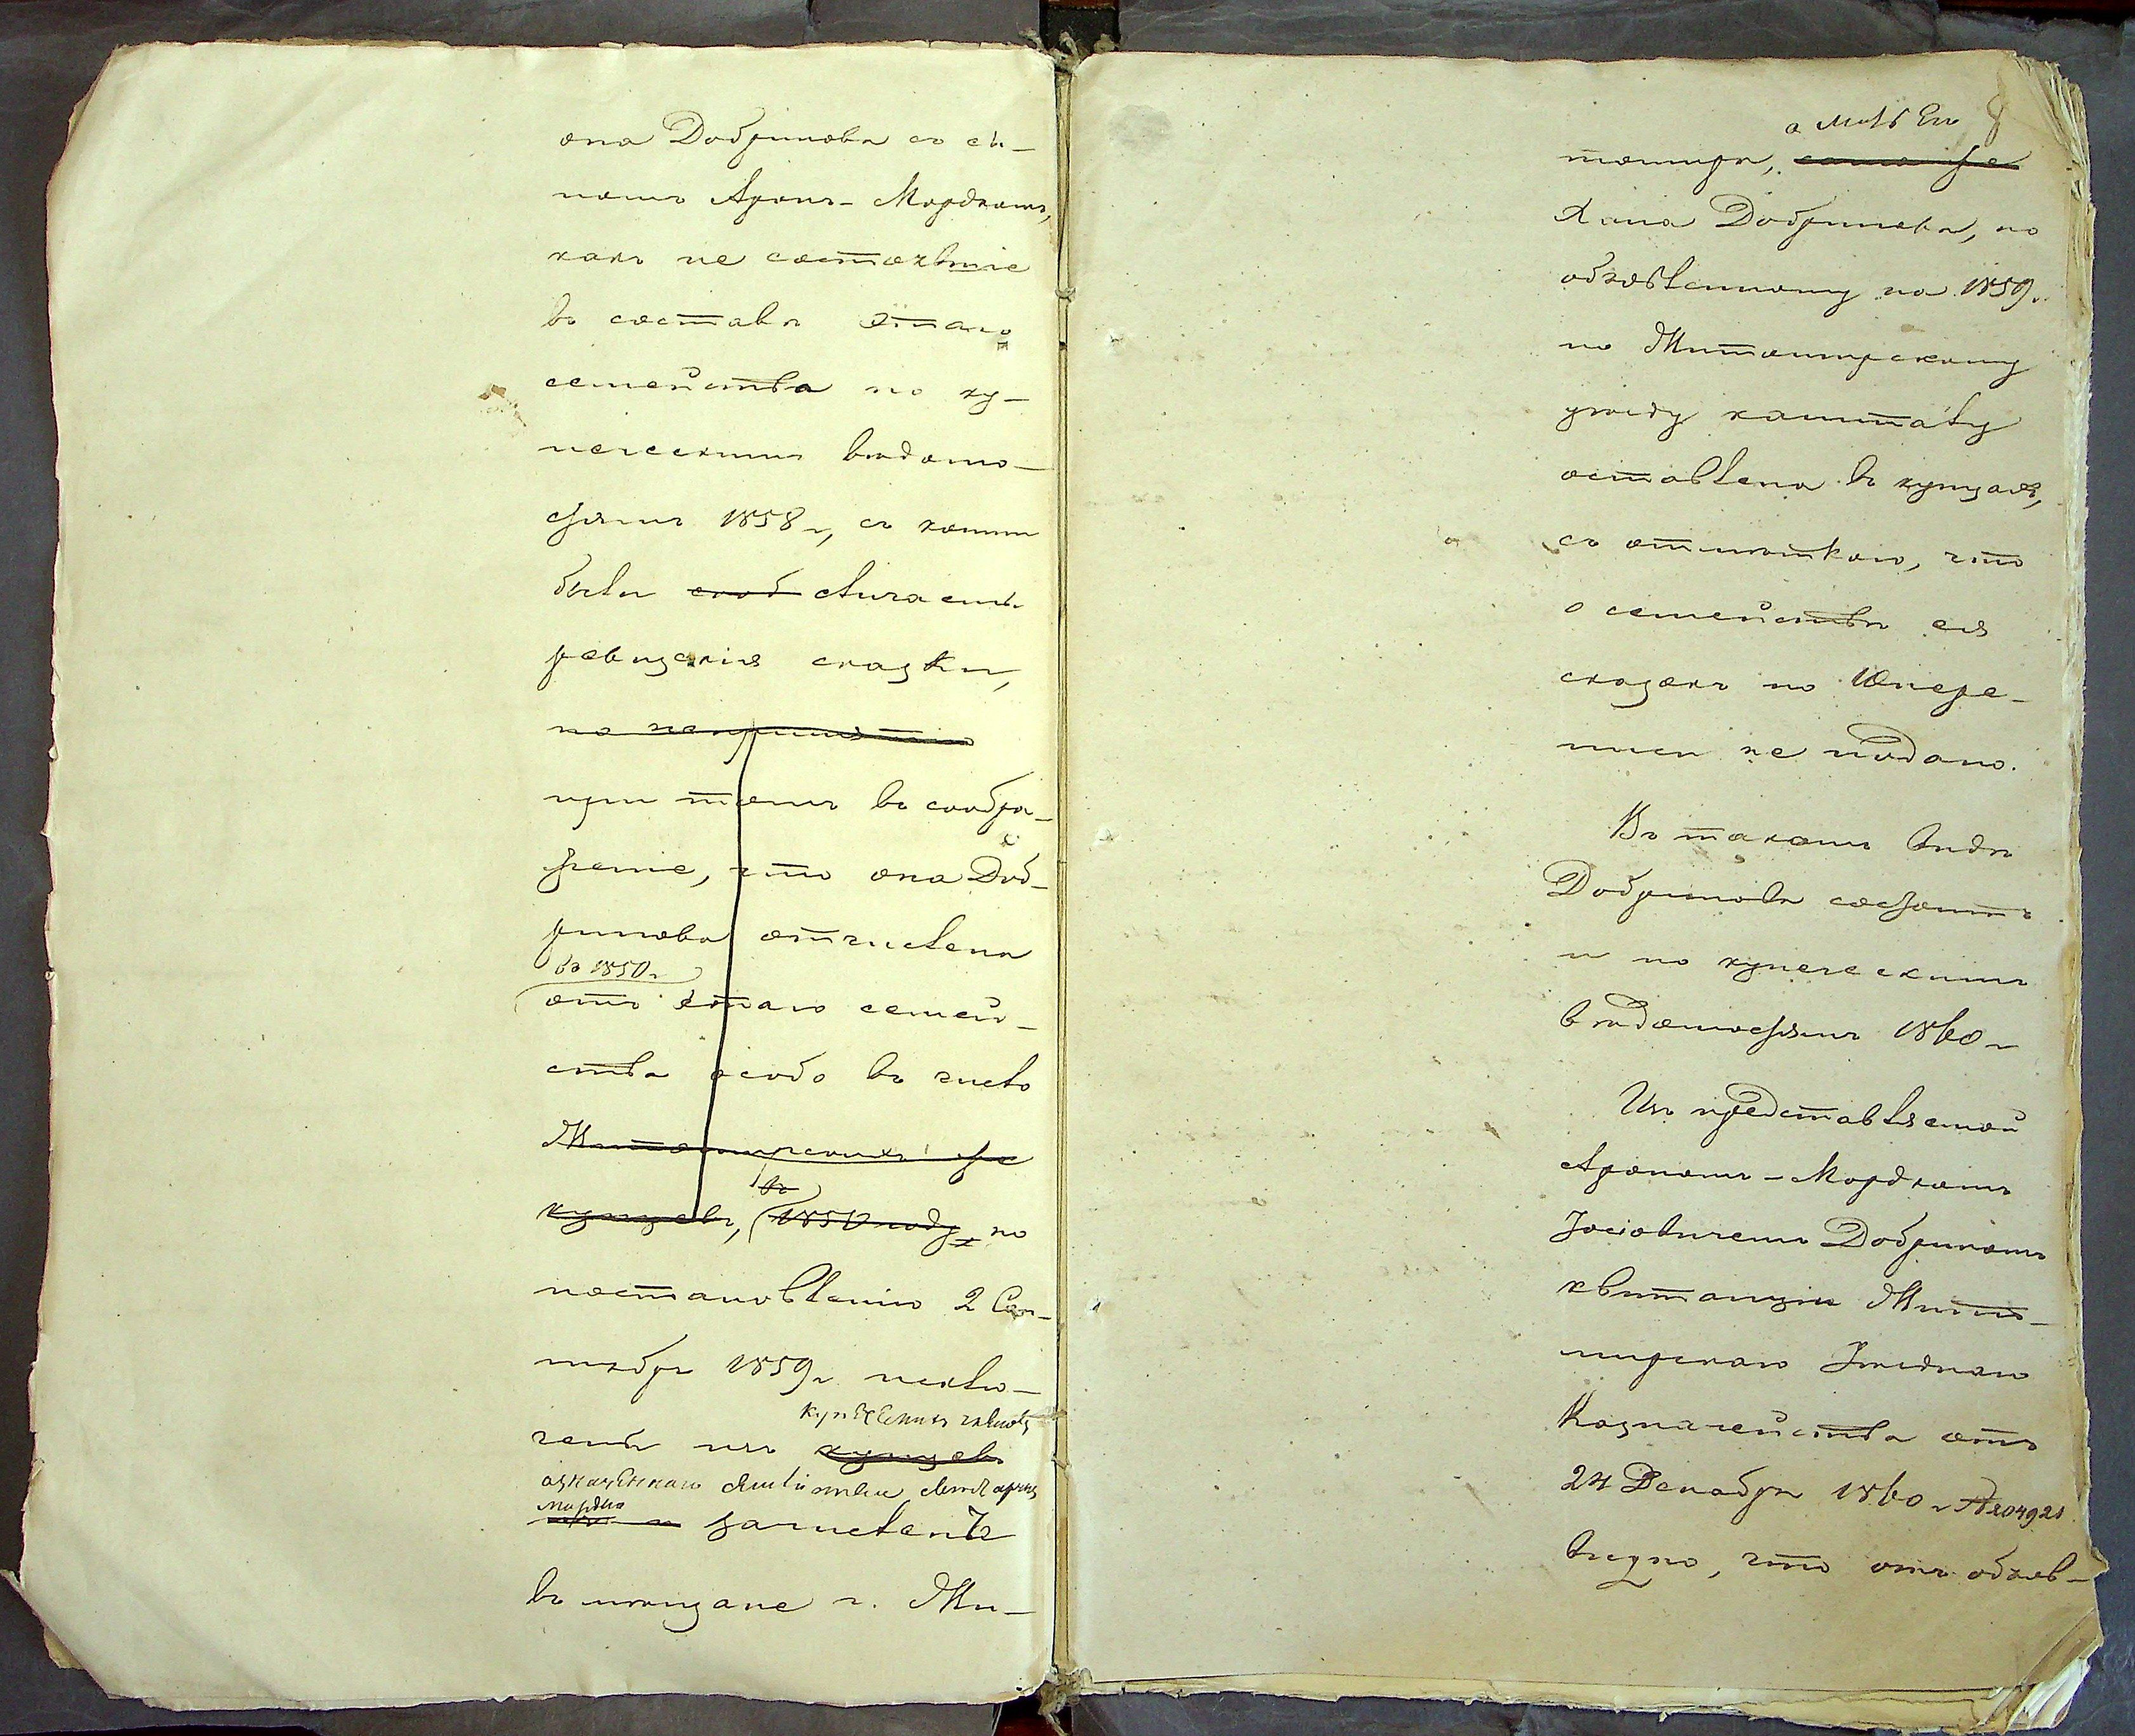 она Добринова съ сы-
номъ Арономъ-Мордкомъ,
какъ не состоявшіе
въ составѣ этаго
семейства по ку-
печескимъ вѣдомо-
стямъ 1858 г., съ коими
были сличаемы
ревизскія сказки,
при томъ въ сообра-
женіе, что она Доб-
ринова отчислена
въ 1850 г.
отъ этаго семей-
ства особо въ число
Житомирскихъ же
купцовъ, въ 1850 году по
постановленію 2 Сен-
тября 1859 г. исклю-
купеческихъ
чены изъ купцовъ
означеннаго
Мордко
зачисленъ
въ мѣщане г. Жи-
а мать Его
томира, сама же
Хана Добринова, по
объявленному на 1859 г.
по Житомирскому
уѣзду капиталу
оставлена въ купцахъ,
съ отмѣткою, что
о семействѣ ея
сказокъ по 10 пере-
писи не подано.
Въ такомъ видѣ
Добринова состоитъ
и по купеческимъ
вѣдомостямъ 1860 г.
Изъ представляемой
Арономъ-Мордкомъ
Іосіовичемъ Добринымъ
квитанціи Жито-
мирскаго Уѣзднаго
Казначейства отъ
24 Декабря 1860 г. № 204921
видно, что отъ объяв-